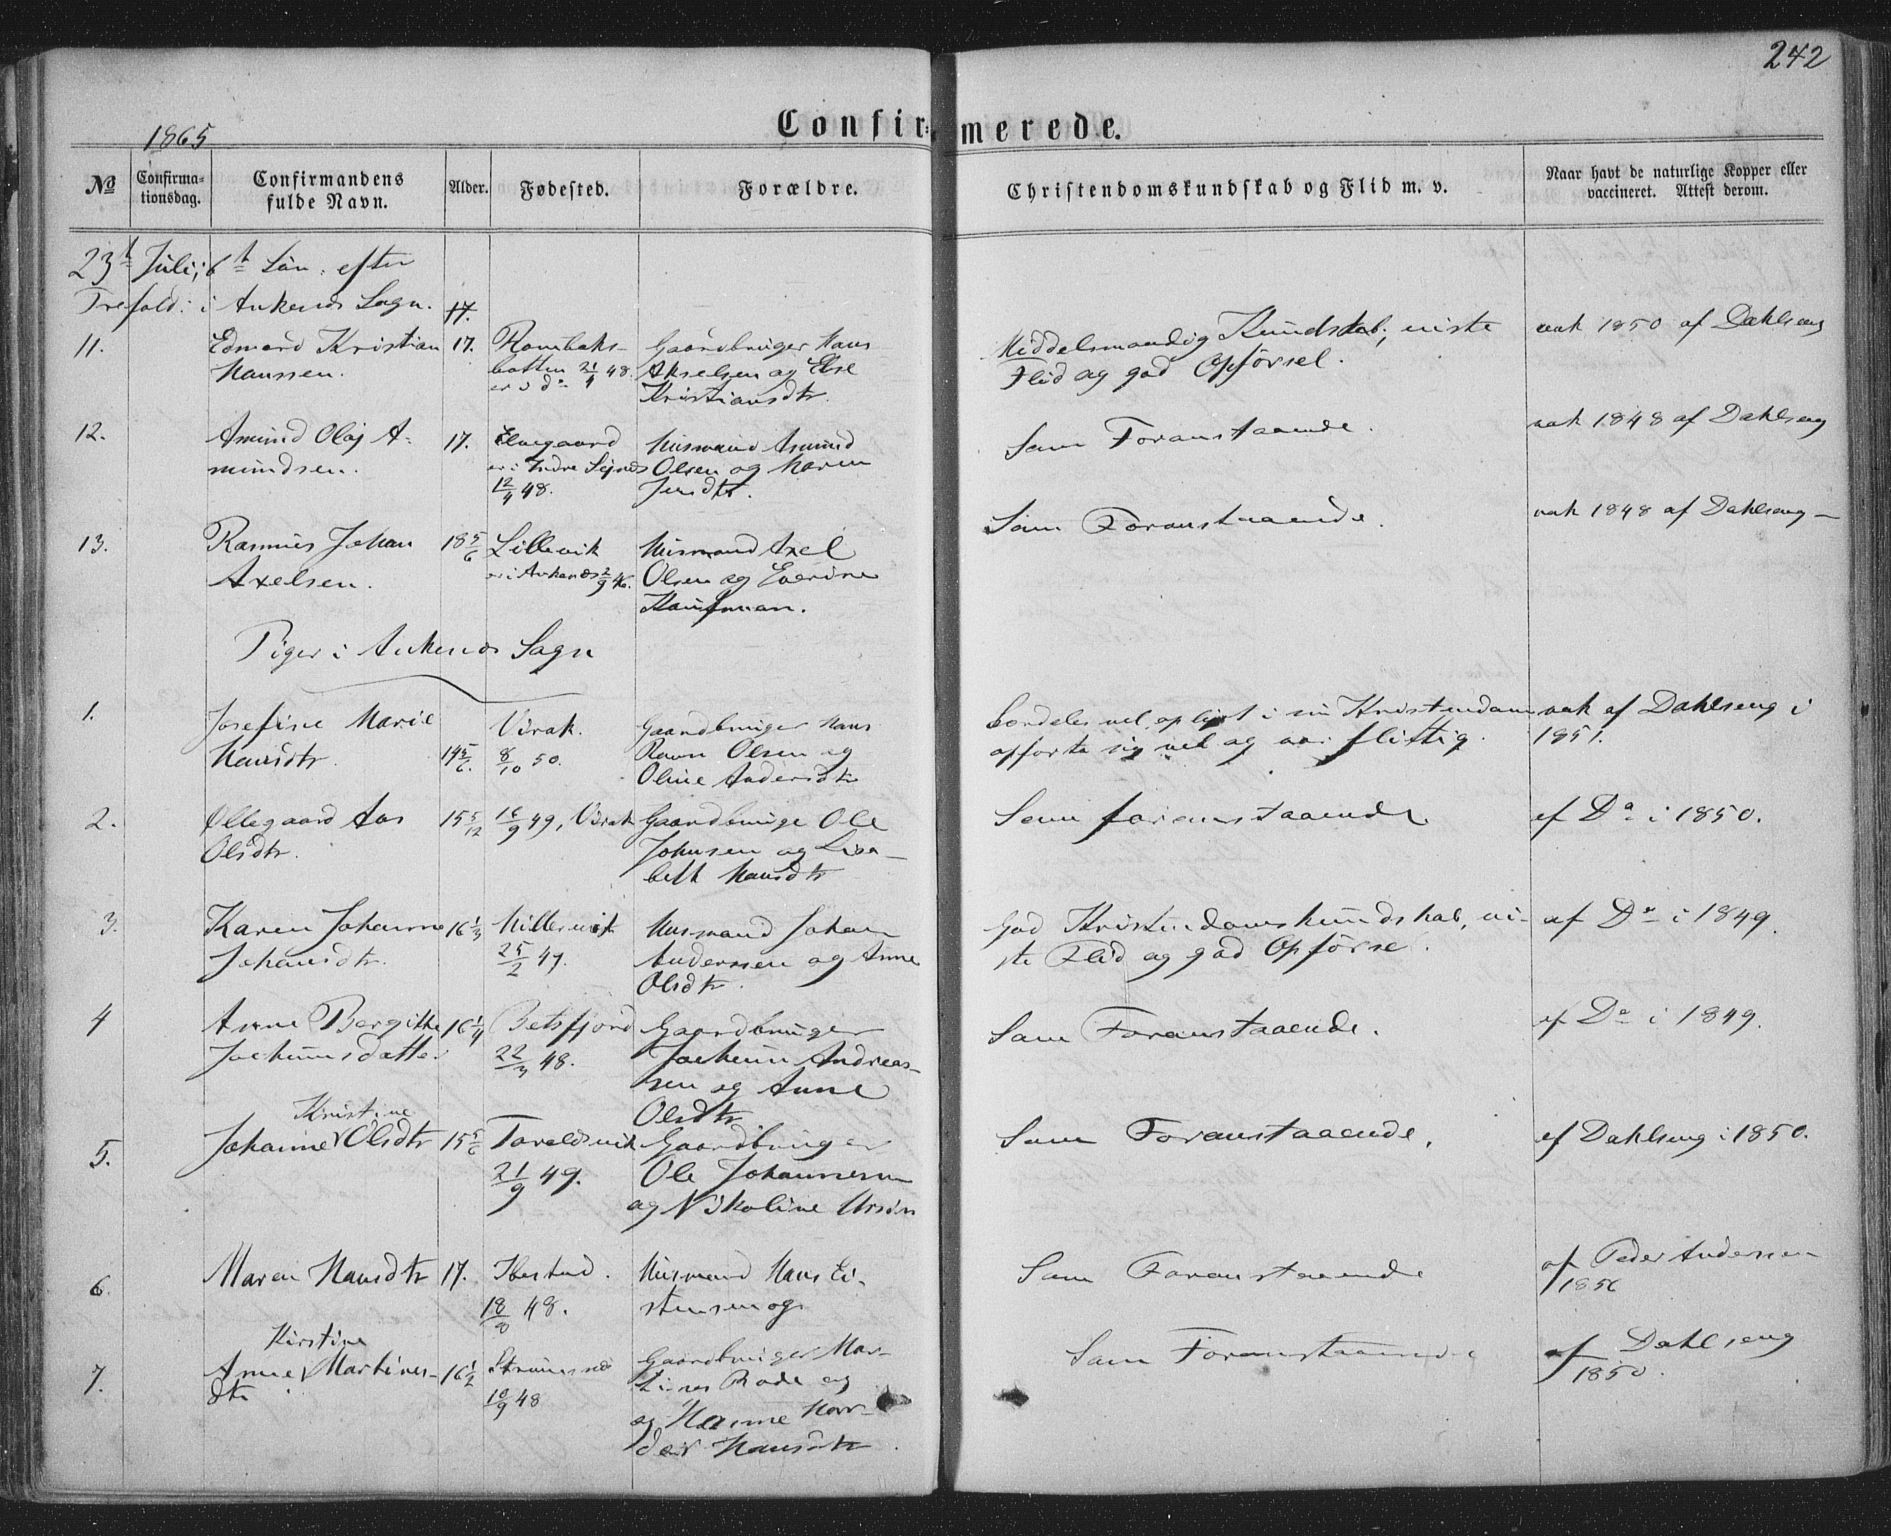 242
Confirmerede.
1865
No
Confirmationsdag.
Confirmandens fulde Navn.
Alder.
Fødested.
Forældre.
Christendomskundskab og Flid m. v.
Naar havt de naturlige Kopper eller vaccineret. Attest derom.
23t Juli, 6t Søn. efter
Trefold: i Ankenes Sogn. 17.
11. Edvard Kristian 17. Rombaks- Gaardbruger Hans
Hanssen. botten 21/4 48. Akselsen og Else
Kristiansdtr.
Middelmaadig Kundskab, viste
Flid og god Opførsel.
vak 1850 af Dahlseng
12. Amund Olaj A- 17. Elvegaard Husmand Amund
mundsen. Olsen og Maren
12/4 48. Jensdtr.
Som Foranstaaende.
vak 1848 af Dahlseng
13. Rasmus Johan 18 5/6 Lillevik Husmand Axel
Axelsen. er i Ankenes 2/9 46. Olsen og Everine
Kaufman.
Som Foranstaaende.
vak 1848 af Dahlseng
Piger i Ankenes Sogn
1. Josefine Marie Virak. Gaardbruger Hans
Hansdtr. 14 5/6. 8/10 50. Ravn Olsen og
Oline Andersdtr
særdeles vel oplyst i sin Kristendom
opførte sig vel og var flittig.
vak af Dahlseng i
1851.
2. Ollegaard Aas 15 5/12 16/9 49, Virak Gaardbruge Ole
Olsdtr. Johnsen og Lisa-
beth Hansdtr
Som foranstaaende
af Do i 1850.
3. Karen Johanne 16 1/3 Husmand Johan
Johansdtr. 25/2 49. Anderssen og Anne
Olsdtr.
God Kristendomskundskab, vi-
ste Flid og god Opførse.
af Do i 1849.
4 Anne Bergitte 16 1/4 Betsfjord Gaardbruger
Jochumsdatter 22/3 48. Jochum Andreas-
sen og Anne
Olsdtr
Som Foranstaaende.
af Do i 1849.
Kristine
5. Johanne Olsdtr 15 5/6 Taraldsvik Gaardbruger
21/9 49. Ole Johannesen
og Nikoline Ursin
Som Foranstaaende.
af Dahlseng i 1850.
6. Maren Hansdtr 17. Ibestad. Husmand Hans Ei-
18/8 48. stensen og
Som Foranstaaende
af Peder Andersen
1856
Kirstine
7. Anne Martines- 16 1/2 Gaardbruger Mar-
dtr 10/9 48 tines Rode og
og Hanne
Hansdtr
Som Foranstaaende
af Dahlseng
1850.